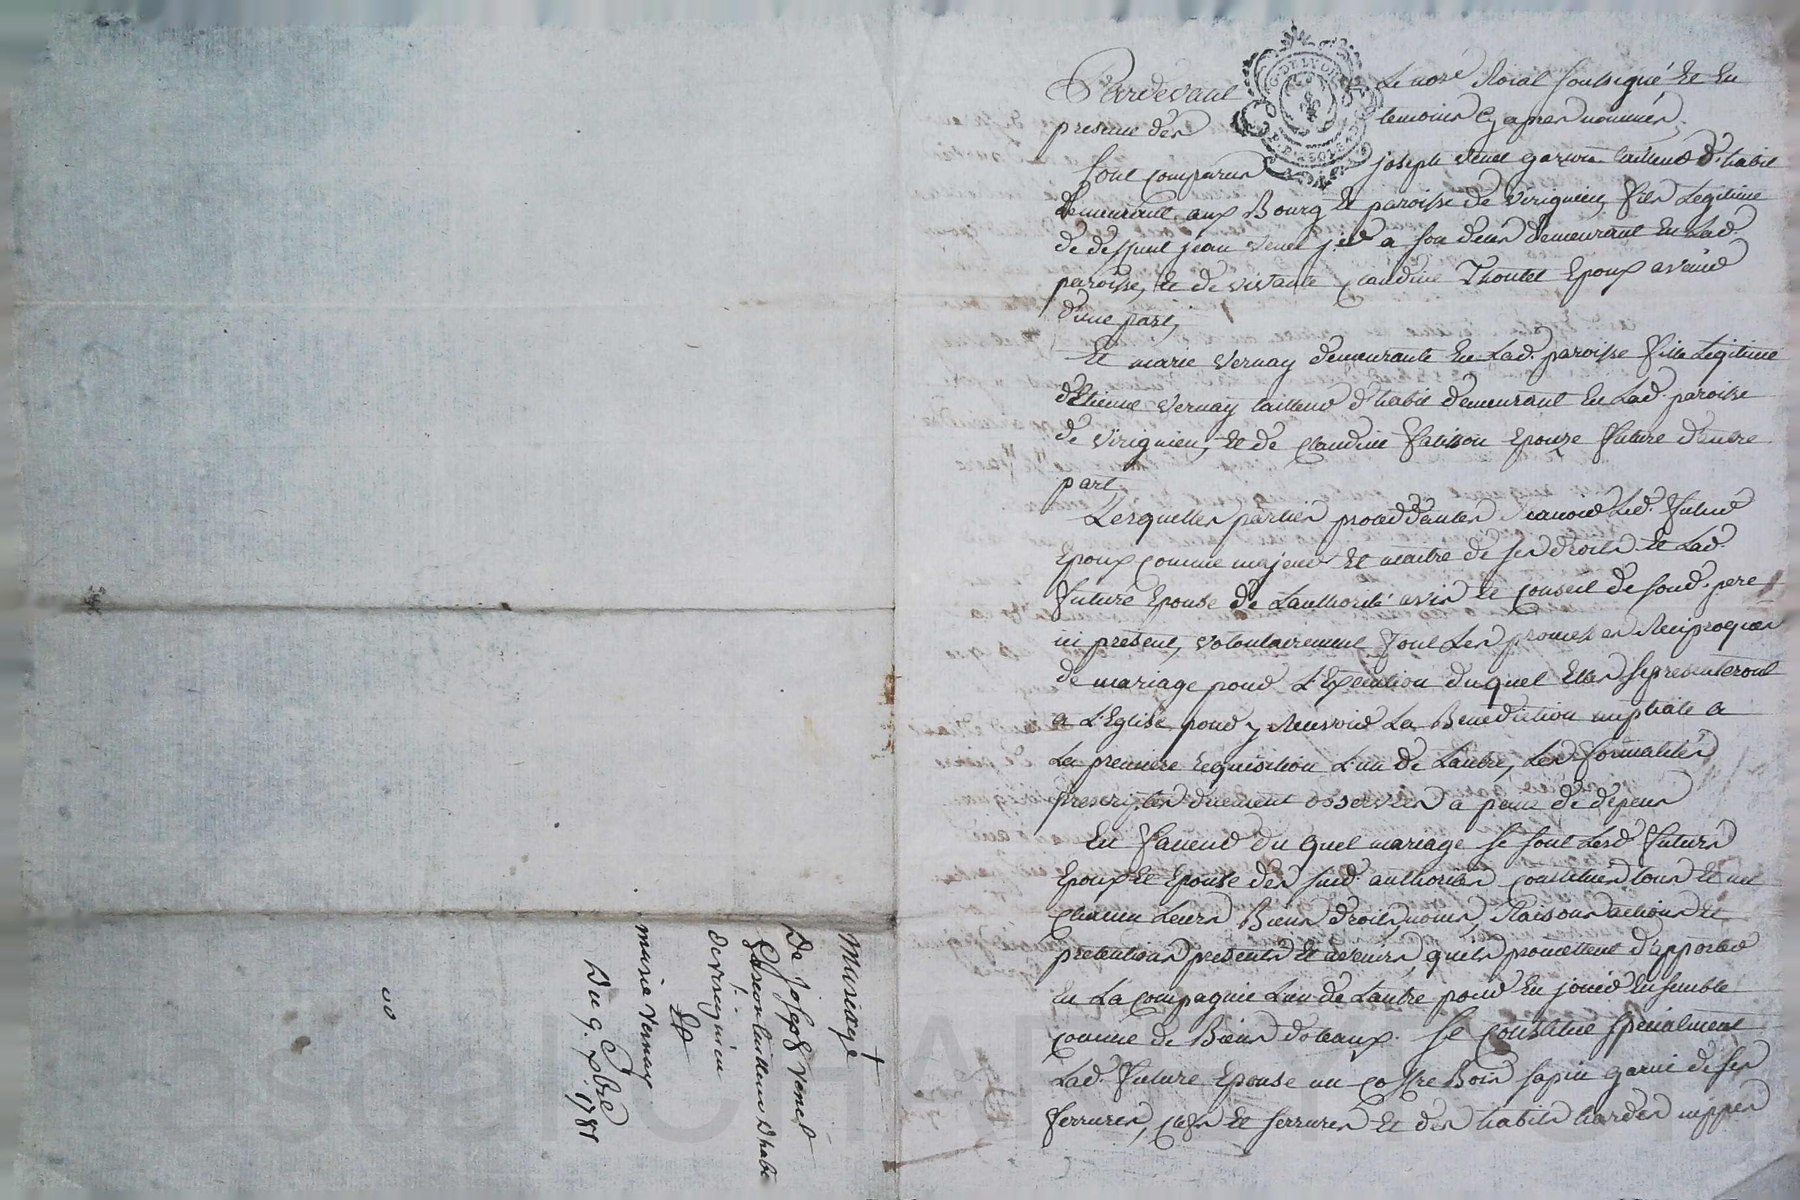 Pardevant Le nore Roial soussigné Et En
presence des temoins Cy apres nommés,
sont comparus joseph Venet garcon tailleur d'habit
demeurant aux Bourg Et paroisse de Virignieu, fils Legitime
de deffunt jean Venet a son deces demeurant En Lad.
paroisse, Et de vivante Claudine Thoulet Epoux avenir
d'une part,
Et marie Vernay demeurante En Lad. paroisse fille Legitime
d'Etienne Vernay tailleur d'habit demeurant En Lad. paroisse
de Virignieu, Et de Claudine Epouze future d'autre
part
Lesquelles parties proceddantes scavoir Led. futur
Epoux comme majeur Et maitre de ses droits Et Lad.
future Epouse de L'authorité avis Et Conseil de soud. pere
ici present, volontairement font Les promesses Reciproques
de mariage pour L'Execution duquel Elles se presenteront
a L'Eglise pour y Recevoir La Benediction nuptiale a
La premiere requisition L'un de L'autre, Les formalités
prescriptes duement observées a peine de depens
En faveur du quel mariage se sont Lesd. futurs
Epoux Et Epouse des susd. authorités Constitués tous Et un
Chacun Leurs Biens droits, noms, Raisons actions Et
pretentions presents Et avenirs, quils promettent d'apporter
En La Compagnie L'un de L'autre pour En jouir Ensemble
comme de Biens doteaux. Se Constitue specialment
Lad. future Epouse un Coffre Bois sapin garni de ses
ferrures, Clefs Et serrures Et des habits hardes nippes
Mariage
De Joseph Venet
Garcon tailleur Dhabi
de virignieu
Et
marie Vernay
Du 9. Xbre 1781